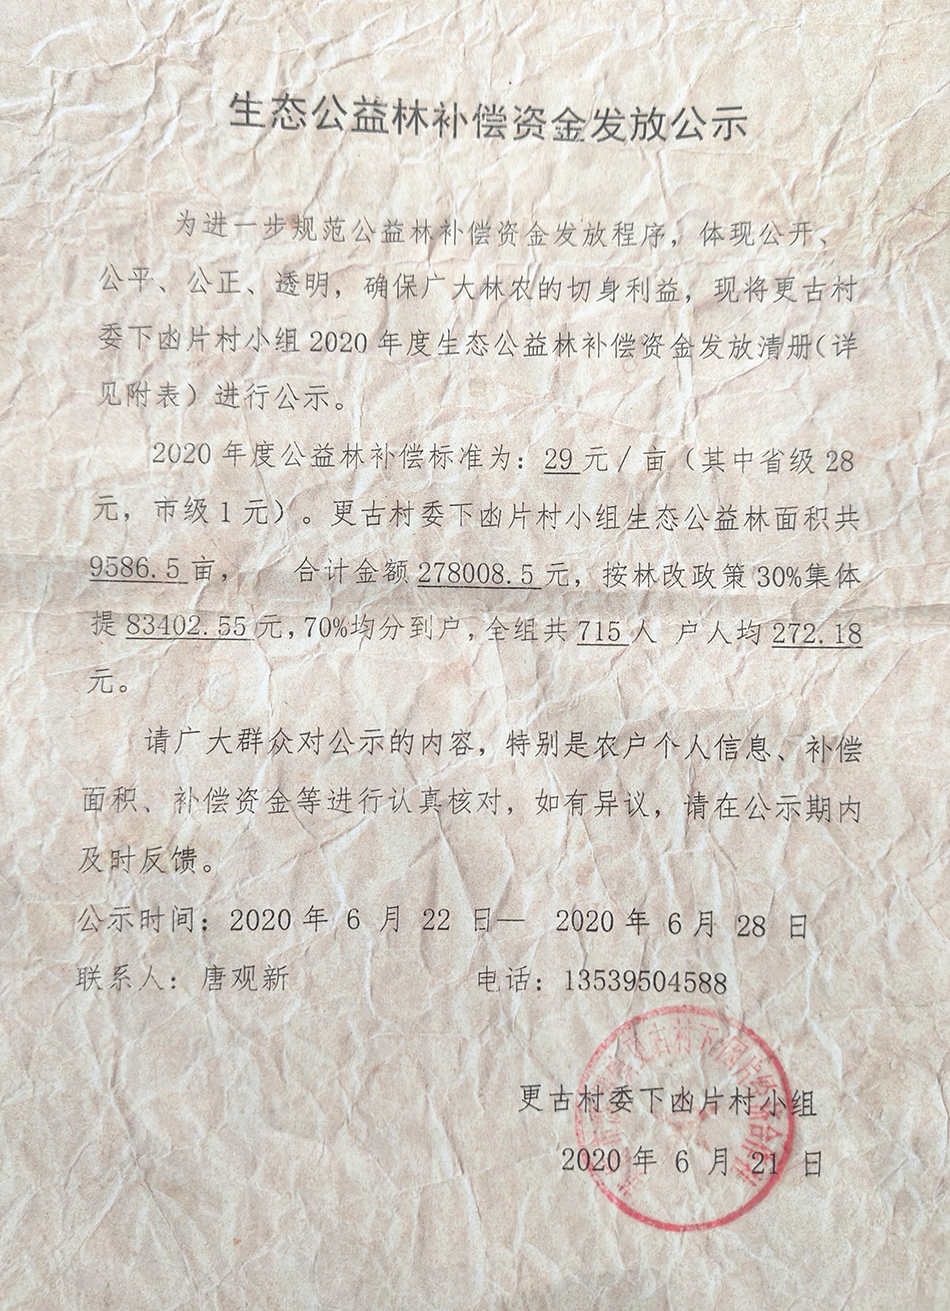 生态公益林补偿资金发放公示
为进一步规范公益林补偿资金发放程序，体现公开、
公平、公正、透明，确保广大林农的切身利益，现将更古村
委下函片村小组 2020 年度生态公益林补偿资金发放清册（详
见附表）进行公示。
2020 年度公益林补偿标准为：29 元／亩（其中省级 28
元，市级 1 元）。更古村委下函片村小组生态公益林面积共
9586.5 亩， 合计金额 278008.5 元，按林改政策 30%集体
提 83402.55 元，70%均分到户，全组共 715 人 户人均 272.18
元。
请广大群众对公示的内容，特别是农户个人信息、补偿
面积、补偿资金等进行认真核对，如有异议，请在公示期内
及时反馈。
公示时间：2020 年 6 月 22 日— 2020 年 6 月 28 日
联系人：唐观新 电话：13539504588
更古村委下函片村小组
2020 年 6 月 21 日